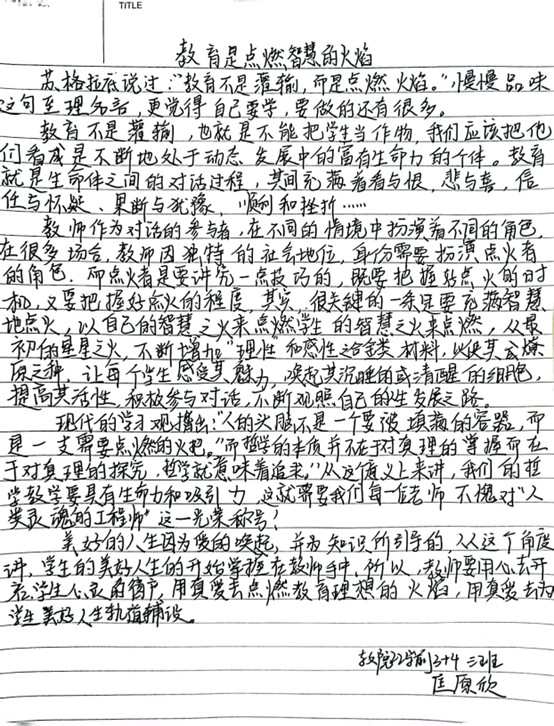 TITLE
教育是点燃智慧的火焰
苏格拉底说过："教育不是灌输，而是点燃火焰。"慢慢品味
这句至理名言，更觉得自己要学，要做的还有很多。
教育不是灌输，也就是不能把学生当作物，我们应该把他
们看成是不断地处于动态发展中的富有生命力的个体。教育
就是生命体之间的对话过程，其间充满着着与恨，悲与喜，信
任与怀疑、果断与犹豫、顺利和挫折……
教师作为对话的参与者，在不同的情境中扮演着不同的角色，
在很多场合，教师因独特的社会地位，身份需要扮演点火者
的角色。而点火者是要讲究一点技巧的，既要把握好点火的时
机，又要把握好点火的程度，其实，很关键的一条是要充满智慧
地点火，以自己的智慧之火来点燃学生的智慧之火来点燃，从最
初的星星之火，不断增加"理性"和感性之合金类材料，以使其成燎
原之种，让每个学生感受其魅力，唤起其沉睡的或清醒的细胞，
提高其活性，积极参与对话，不断观照自己的生发展之路。
现代的学习观指出："人的头脑不是一个要被填满的容器，而
是一支需要点燃的火把。"而哲学的本质并不在于对真理的掌握而在
于对真理的探究，哲学就意味着追求。"从这个意义上来讲，我们的哲
学教学要具有生命力和吸引力，这就需要我们每一位老师不愧对"人
类灵魂的工程师"这一光荣称号！
美好的人生因为爱的唤起，并为知识所引导的，从这个角度
讲，学生的美好人生的开始掌握在教师手中，所以，教师要用心去开
启学生心灵的窗户，用真爱去点燃教育理想的火焰，用真爱去为
学生美好人生轨道铺设。
教院22学前3+4三班
匡原欣